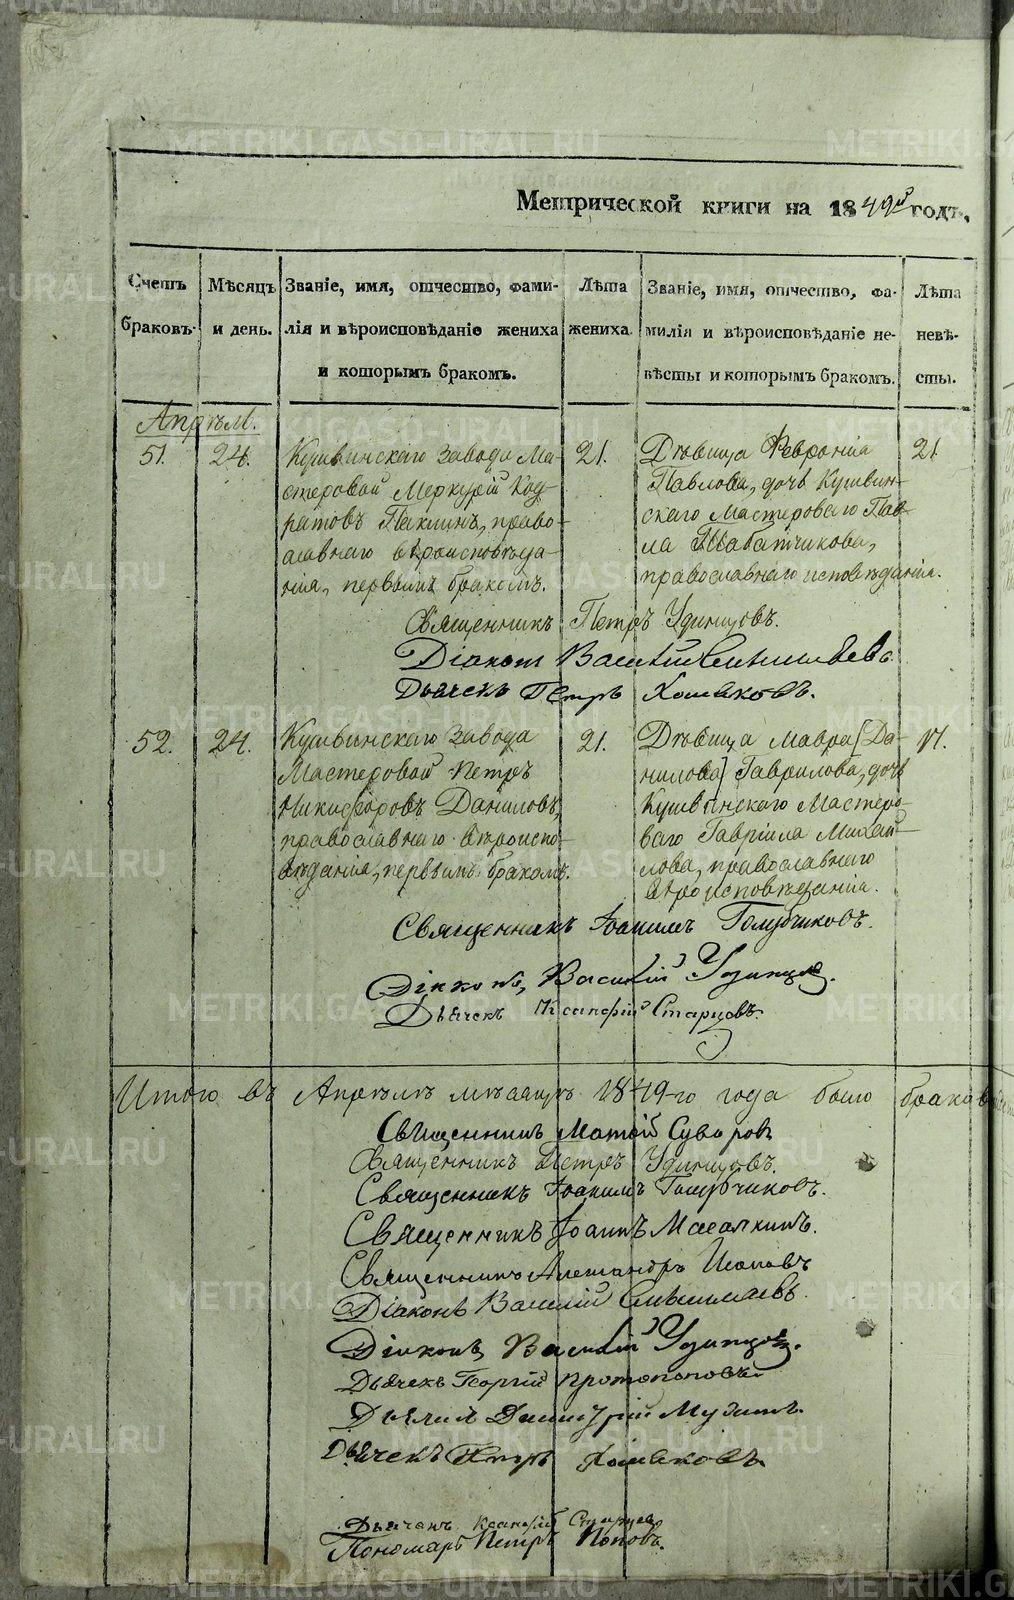 METRIKI.GASO-URAL.RU
Метрической книги на 1849й годъ,
Счетъ браковъ.
Мѣсяцъ и день.
Званіе, имя, отчество, фами-
лія и вѣроисповѣданіе жениха
и которымъ бракомъ.
Лѣта
жениха.
Званіе, имя, отчество, фа-
милія и вѣроисповѣданіе не-
вѣсты и которымъ бракомъ.
Лѣта
невѣ-
сты.
Апрѣль.
51.
24.
Кушвинскаго завода Ма-
стеровой Меркурій Код-
ратовъ Паклинъ, право-
славнаго вѣроисповѣда-
нія, первымъ бракомъ.
21.
Дѣвица Февронія
Павлова, дочь Кушвин-
скаго мастероваго Пав-
ла Табатчикова,
православнаго исповѣданія.
21
Священникъ Петръ Удинцовъ.
Діаконъ Василій
Дьячекъ Петръ Хомяковъ.
52.
24.
Кушвинскаго завода
Мастеровой Петръ
Никифоровъ Даниловъ,
православнаго вѣроиспо-
вѣданія, первымъ бракомъ.
21.
Дѣвица Мавра [Да-
нилова] Гаврилова, дочь
Кушвинскаго Мастеро-
ваго Гавріила Михай-
лова, православнаго
вѣроисповѣданія.
Священникъ Іоакимъ Голубчиковъ.
Діаконъ, Василій Удинцовъ.
Дьячекъ Ксанфій Старцовъ.
Итого въ Апрѣлѣ мѣсяцѣ 1849-го года было
Священникъ Матѳій Суворовъ
Священникъ Петръ Удинцовъ.
Священникъ Іоакимъ Голубчиковъ.
Священникъ Іоаннъ Масалкинъ.
Священникъ Александръ Поповъ
Діаконъ Василій
Діаконъ Василій Удинцовъ.
Дьячекъ Георгій Протопоповъ.
Дьячекъ Димитрій Мудинъ.
Дьячекъ Петръ Хомяковъ.
Дьячекъ Ксанфій Старцовъ
Пономарь Петръ Поповъ.